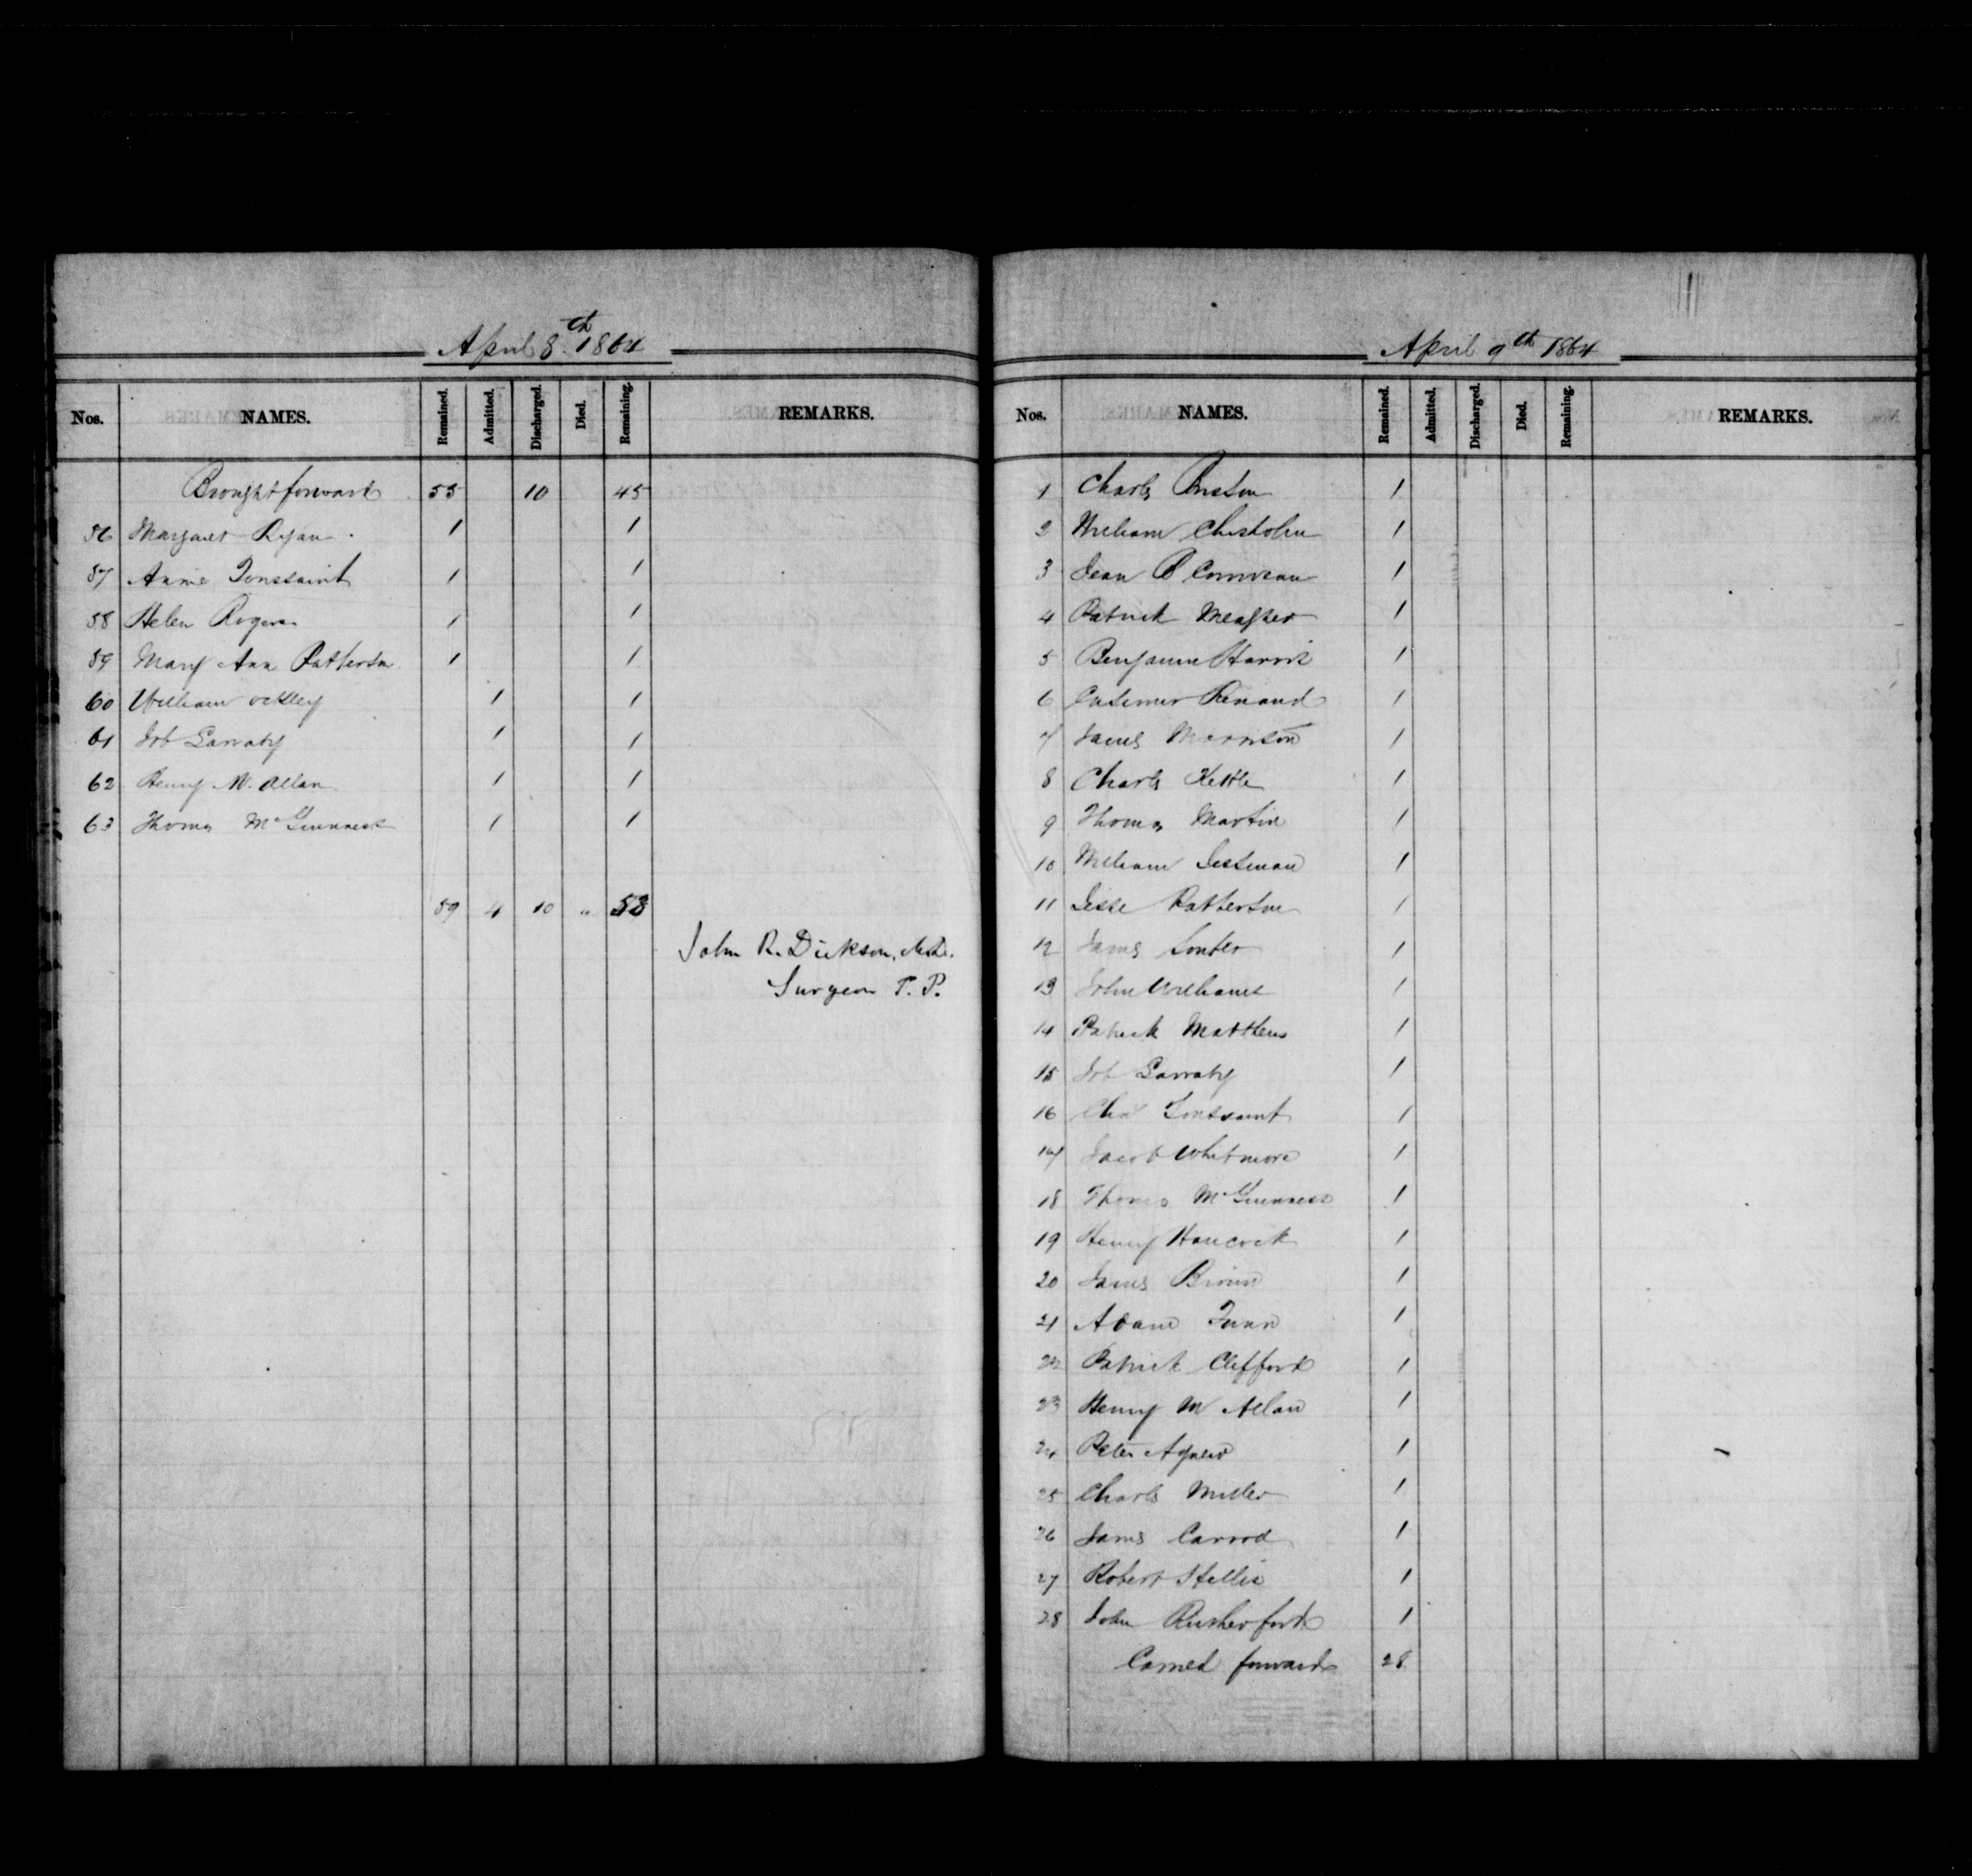 April 8th 1864
Nos. NAMES. Remained. Admitted. Discharged. Died. Remaining. REMARKS.
Brought forward 55 10 45
56 Margaret Ryan 1 1
57 Annie Toussaint 1 1
58 Helen Rogers 1 1
59 Mary Ann Patterson 1 1
60 William 1 1
61 Job Garraty 1 1
62 Henry M. Allan 1 1
63 Thomas McGuinness 1 1
59 4 10 " 53
John R. Dickson, M.D.
Surgeon P. P.
April 9th 1864
Nos. NAMES. Remained. Admitted. Discharged. Died. Remaining. REMARKS.
1 Charles 1
2 William Chisholm 1
3 Jean B Corriveau 1
4 Patrick Meagher 1
5 Benjamin Harris 1
6 Casimir Renaud 1
7 James Morrison 1
8 Charles Kettle 1
9 Thomas Martin 1
10 William 1
11 Jesse Patterson 1
12 James Souter 1
13 John Williams 1
14 Patrick Matthews 1
15 Job Garraty 1
16 Chas Toussaint 1
17 Jacob Whitmore 1
18 Thomas McGuinness 1
19 Henry Hancock 1
20 James Brown 1
21 Adam 1
22 Patrick Clifford 1
23 Henry M Allan 1
24 Peter Agnew 1
25 Charles Miller 1
26 James 1
27 Robert 1
28 John Rutherford 1
Carried forward 28